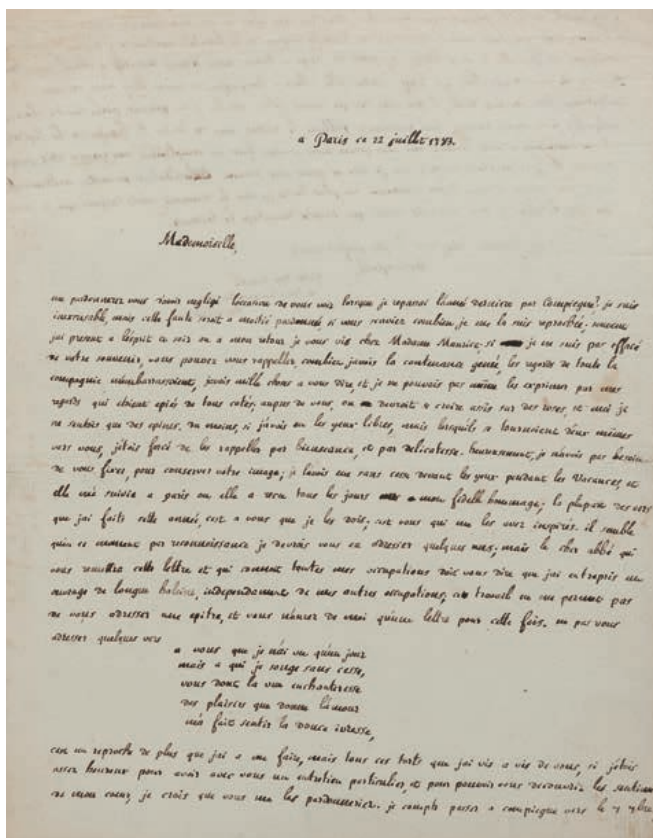 a Paris ce 22 juillet 1783.
Mademoiselle,
me pardonnerez vous d'avoir negligé l'occasion de vous voir lorsque je repassai l'année derniere par Compiegne? je suis
inexcusable, mais cette faute seroit a moitié pardonnée si vous scaviez combien je me la suis reprochée; souvent
j'ai present a l'esprit ce soir ou a mon retour je vous vis chez Madame Maurice; si je ne suis pas effacé
de votre souvenir, vous pouvez vous rappeller combien j'avois la contenance genée, les regards de toute la
compagnie m'embarrassoient, j'avois mille choses a vous dire et je ne pouvois pas même les exprimer par mes
regards qui etoient epiés de tous cotés; aupres de vous, on devroit se croire assis sur des roses, et moi je
ne sentois que des epines. du moins, si j'avois eu les yeux libres, mais lorsqu'ils se tournoient d'eux mêmes
vers vous, j'etois forcé de les rappeller par bienseance, et par delicatesse. heureusement, je n'avois pas besoin
de vous fixer, pour conserver votre image; je l'avois eue sans cesse devant les yeux pendant les vacances, et
elle m'a suivie a paris ou elle a recu tous les jours mon fidelle hommage; la plupart des vers
que j'ai faits cette année, c'est a vous que je les dois; c'est vous qui me les avez inspirés. il semble
qu'en ce moment par reconnoissance je devrois vous en adresser quelques uns; mais le cher abbé qui
vous remettra cette lettre et qui connoit toutes mes occupations doit vous dire que j'ai entrepris un
ouvrage de longue haleine, independamment de mes autres occupations; ce travail ne me permet pas
de vous adresser une epitre, et vous n'aurez de moi qu'une lettre pour cette fois. ne pas vous
adresser quelques vers
a vous que je n'ai vu qu'un jour
mais a qui je songe sans cesse,
vous dont la vue enchanteresse
des plaisirs que donne l'amour
m'a fait sentir la douce ivresse,
c'est un reproche de plus que j'ai a me faire, mais tous ces torts que j'ai vis a vis de vous, si j'etois
assez heureux pour avoir avec vous un entretien particulier, et pour pouvoir vous decouvrir les sentimens
de mon coeur, je crois que vous me les pardonneriez. je compte passer a compiegne vers le 7 7bre